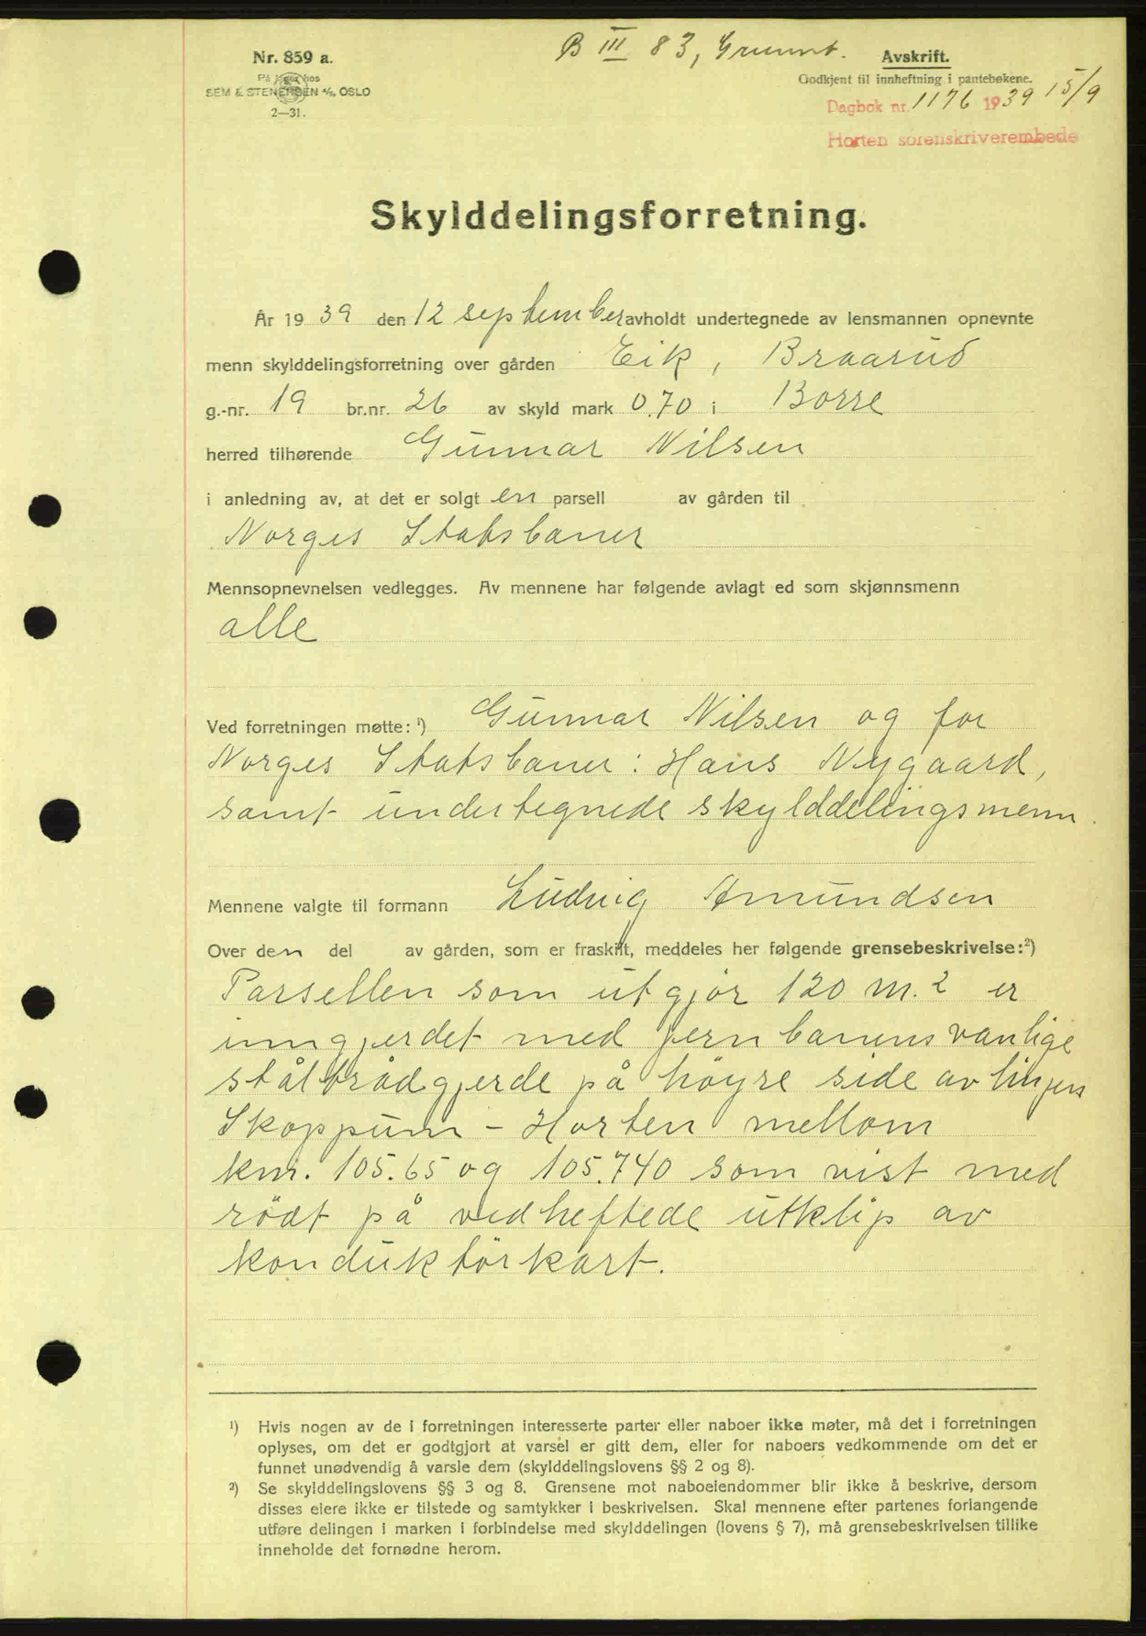 B III 83, Grunnt.
Nr. 859 a.
På lager hos
SEM & STENERSEN A/S, OSLO
2—31.
Avskrift.
Godkjent til innheftning i pantebøkene.
Dagbok nr. 1176 1939 15/9
Horten sorenskriverembede
Skylddelingsforretning.
År 1939 den 12 september avholdt undertegnede av lensmannen opnevnte
menn skylddelingsforretning over gården Eik, Braarud
g.-nr. 19 br.nr. 26 av skyld mark 0.70 i Borre
herred tilhørende Gunnar Nilsen
i anledning av, at det er solgt en parsell av gården til
Norges Statsbaner
Mennsopnevnelsen vedlegges. Av mennene har følgende avlagt ed som skjønnsmenn
alle
Ved forretningen møtte: ¹) Gunnar Nilsen og for
Norges Statsbaner: Hans Nygaard,
samt undertegnede skylddelingsmenn.
Mennene valgte til formann Ludvig Amundsen
Over den del av gården, som er fraskilt, meddeles her følgende grensebeskrivelse: ²)
Parsellen som utgjør 120 m.2 er
inngjerdet med jernbanens vanlige
ståltrådgjerde på høyre side av linjen
Skoppum - Horten mellom
km. 105.65 og 105.740 som vist med
rødt på vedheftede utklip av
konduktørkart.
¹) Hvis nogen av de i forretningen interesserte parter eller naboer ikke møter, må det i forretningen
oplyses, om det er godtgjort at varsel er gitt dem, eller for naboers vedkommende om det er
funnet unødvendig å varsle dem (skylddelingslovens §§ 2 og 8).
²) Se skylddelingslovens §§ 3 og 8. Grensene mot naboeiendommer blir ikke å beskrive, dersom
disses eiere ikke er tilstede og samtykker i beskrivelsen. Skal mennene efter partenes forlangende
utføre delingen i marken i forbindelse med skylddelingen (lovens § 7), må grensebeskrivelsen tillike
inneholde det fornødne herom.